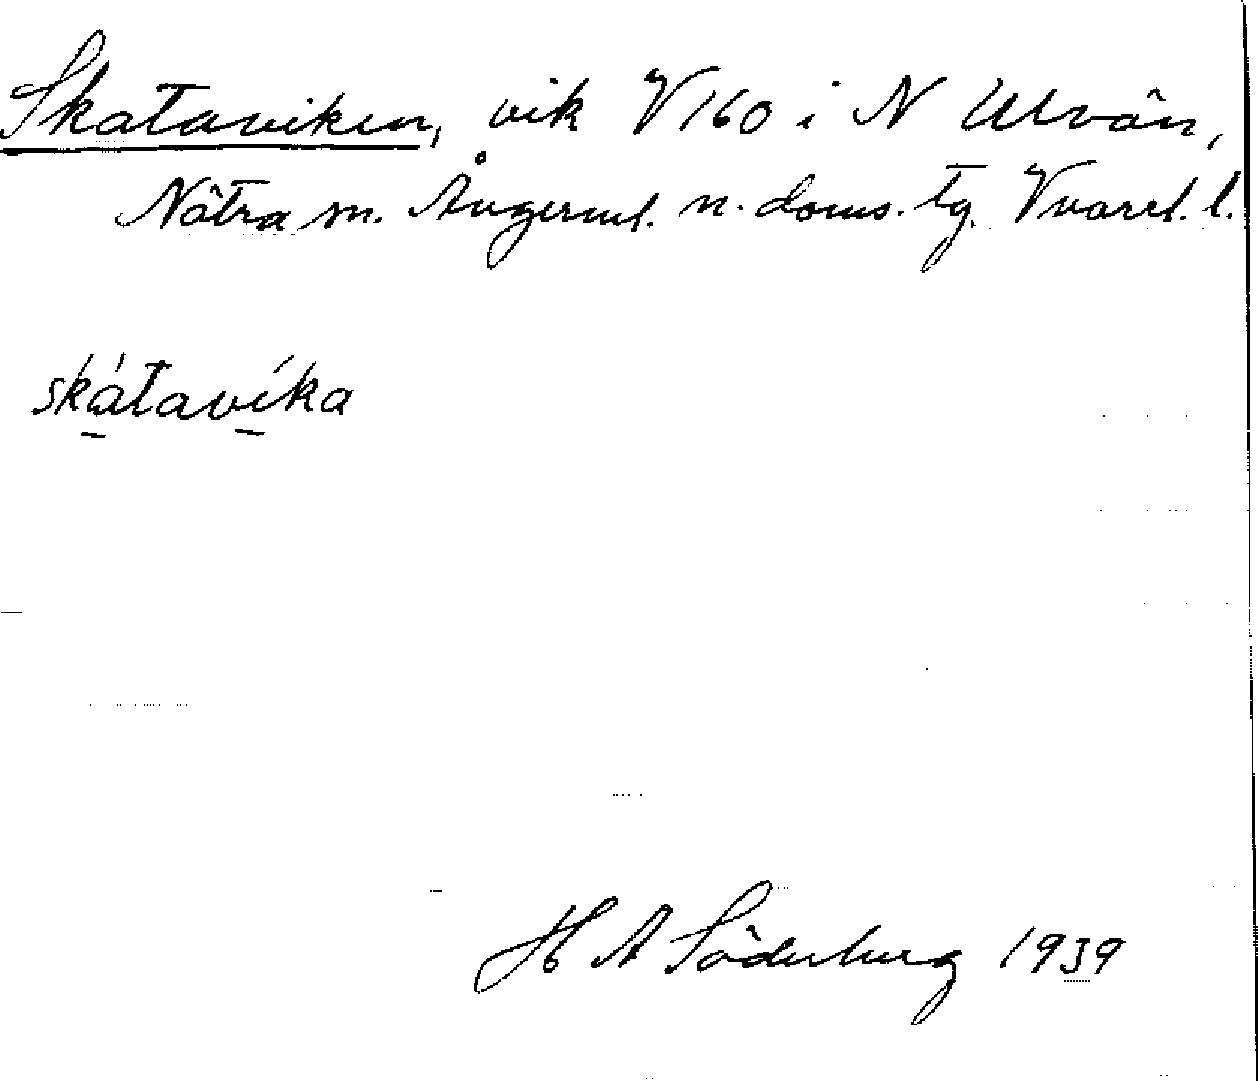 Skataviken, vik V 160 i N Ulvön,
Nätra sn. Ångerml. n. doms. tg. Vnorrl. l.
skátavíka
H A Söderberg 1939